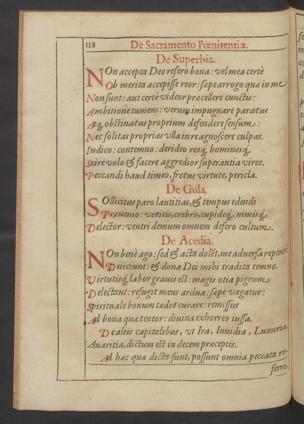 118 De Sacramento Pœnitentiæ.
De Superbia.
NOn accepta Deo refero bona: vel mea certè
Ob merita accepisse reor: sæpe arrogo quæ in me
Non sunt: aut certè videor præcellere cunctis:
Ambitione tumens: verum impugnare paratus
Atq, obstinatus proprium defendere sensum:
Nec solitas proprias vlla in re agnoscere culpas.
Iudico: contemno: derideo resq, hominesq,
Scire volo & facere aggredior superantia vires.
Peccandi haud timeo, fretus virtute, pericla.
De Gula.
SOllicitus paro lautitias, & tempus edendi
Præuenio: vetitis, crebro, cupideq, nimisq,
Delector: ventri demum omnem defero cultum.
De Acedia.
NOn benè ago: sed & acta dolet, me aduersa repenti
Deijciunt: & dona Dei mihi tradita temno.
Virtutisq, labor grauis est: magis otia pigrum
Delectant: refugit mens ardua: sæpe vagatur:
Spirituale bonum tædet curare: remissus
Ad bona quæ teneor: diuina exhorreo iussa.
De alijs capitalibus, vt Ira, Inuidia, Luxuria,
Auaritia, dictum est in decem præceptis.
Ad hæc quæ dicta sunt, possunt omnia peccata re-
ferri